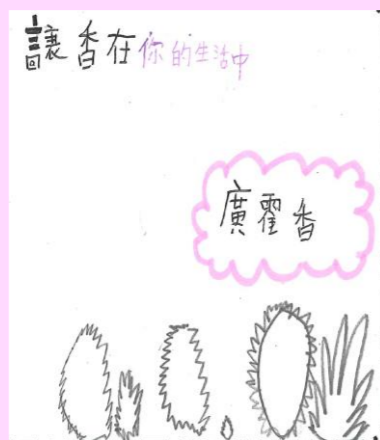 讓香在你的生活中
廣霍香